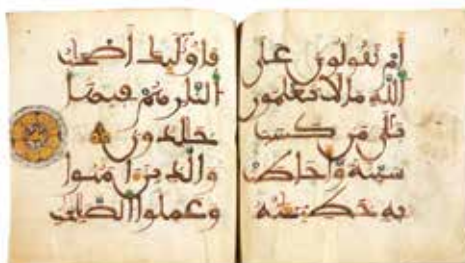 ام تقولون على
الله ما لا تعلمون
بلى من كسب
سيئة واحاطت
به خطيئته
فاوليك اصحب
النار هم فيها
خلدون
والذين امنوا
وعملوا الصلحت